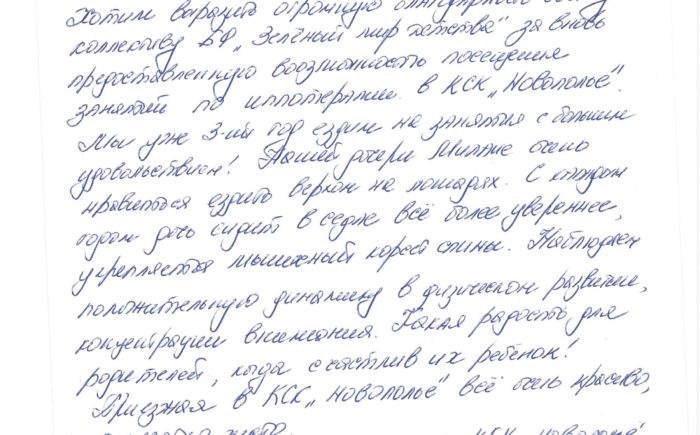 Хотим выразить огромную благодарность всему
коллективу БФ „Зелёный мир детства" за вновь
предоставленную воозможность посещения
занятий по иппотерапии в КСК „Новополье".
Мы уже 3-ий год ездим на занятия с большим
удовольствием! Нашей дочери Милане очень
нравиться ездить верхом на лошадях. С каждым
годом дочь сидит в седле всё более увереннее,
укрепляется мышечный корсет спины. Наблюдаем
положительную динамику в физическом развитии,
концентрации внимания. Какая радость для
родителей, когда счастлив их ребёнок!
Приезжая в КСК „Новополье" всё очень красиво,
КСК „Новополье"